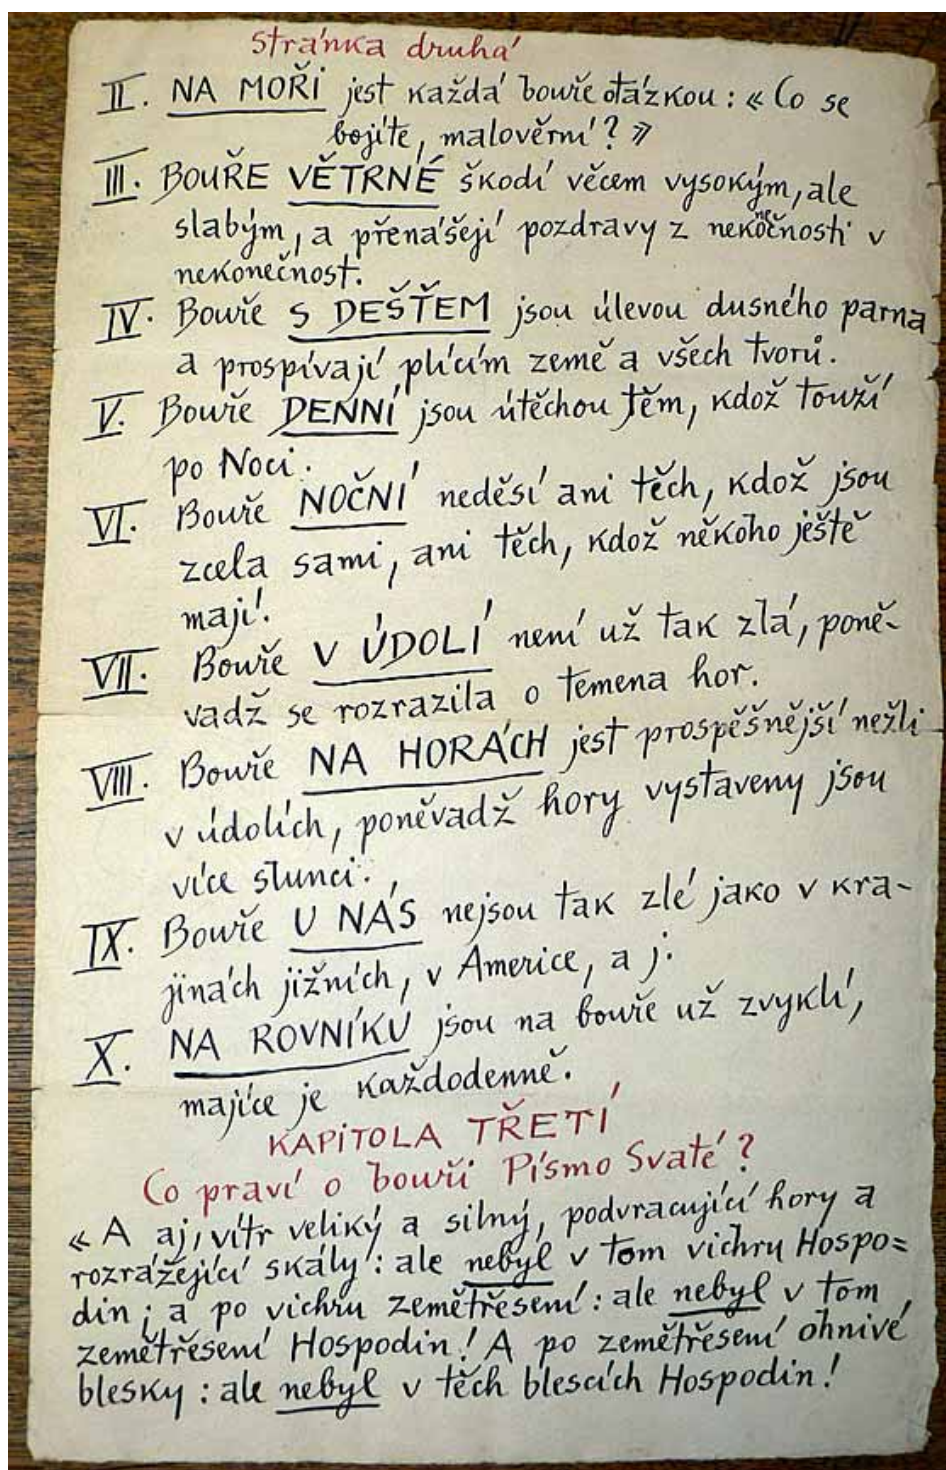 Stránka druhá
II. NA MOŘI jest každá bouře otázkou: « Co se
bojíte, malověrní? »
III. BOUŘE VĚTRNÉ škodí věcem vysokým, ale
slabým, a přenášejí pozdravy z nekonečnosti v
nekonečnost.
IV. Bouře S DEŠTĚM jsou úlevou dusného parna
a prospívají plícím země a všech tvorů.
V. Bouře DENNÍ jsou útěchou těm, kdož touží
po Noci.
VI. Bouře NOČNÍ neděsí ani těch, kdož jsou
zcela sami, ani těch, kdož někoho ještě
mají.
VII. Bouře V ÚDOLÍ není už tak zlá, poně-
vadž se rozrazila o temena hor.
VIII. Bouře NA HORÁCH jest prospěšnější nežli
v údolích, poněvadž hory vystaveny jsou
více slunci.
IX. Bouře U NÁS nejsou tak zlé jako v kra-
jinách jižních, v Americe, a j.
X. NA ROVNÍKU jsou na bouře už zvyklí,
majíce je každodenně.
KAPITOLA TŘETÍ
Co praví o bouři Písmo Svaté?
« A aj, vítr veliký a silný, podvracující hory a
rozrážející skály: ale nebyl v tom vichru Hospo=
din; a po vichru zemětřesení: ale nebyl v tom
zemětřesení Hospodin! A po zemětřesení ohnivé
blesky: ale nebyl v těch blescích Hospodin!